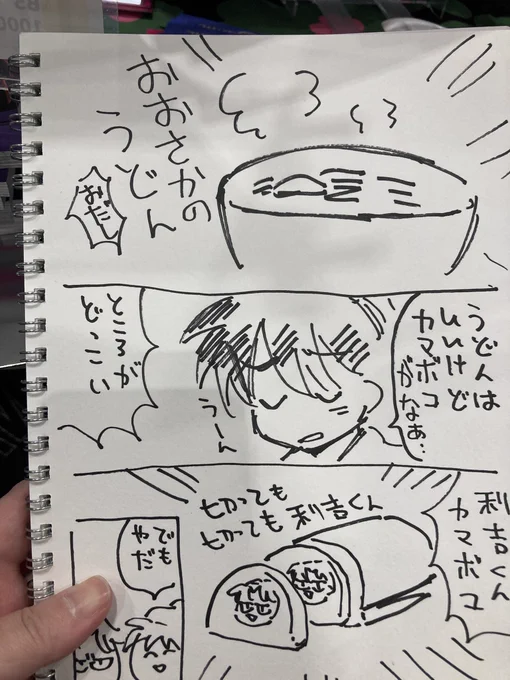 おおさかの
うどん
おだし
うどんは
いいけど
カマボコ
がなぁ…
うーん
ところが
どっこい
利吉くん
カマボコ
切っても
切っても利吉くん
でも
やだ